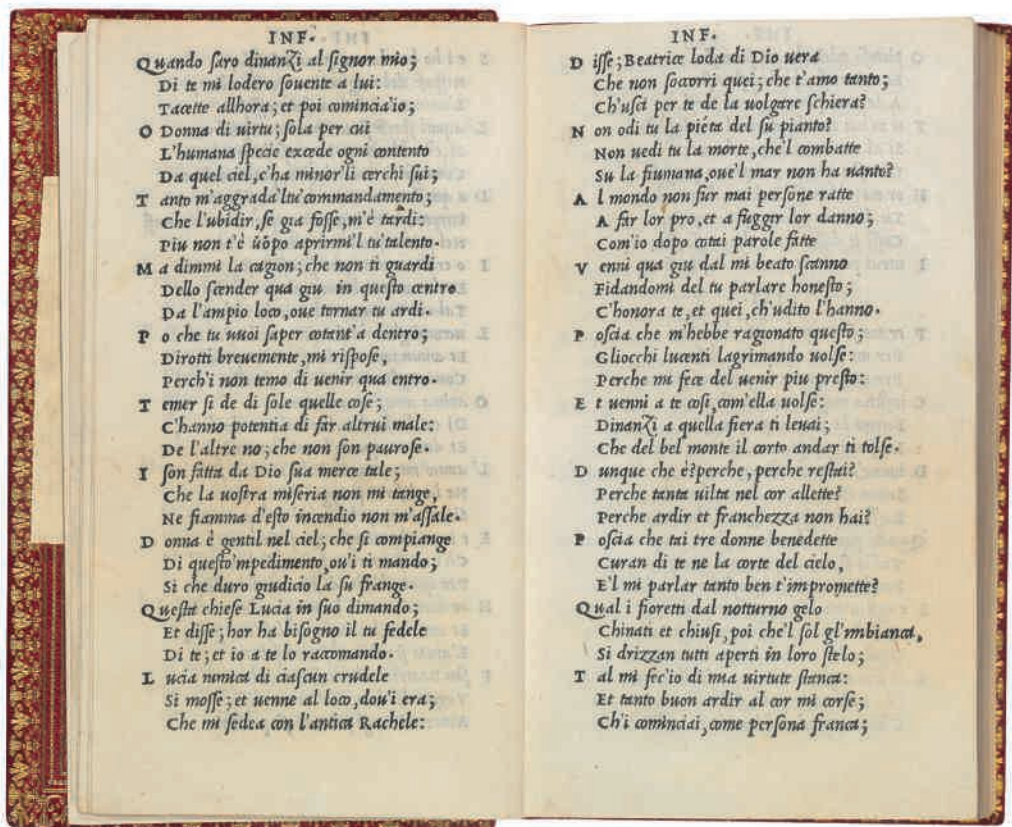 INF.
Quando saro dinanzi al signor mio;
Di te mi lodero souente a lui:
Tacette allhora; et poi comincia'io;
O Donna di uirtu; sola per cui
L'humana specie excede ogni contento
Da quel ciel, c'ha minor'li cerchi sui;
T anto m'aggrada'ltu'commandamento;
Che l'ubidir, se gia fosse, m'è tardi:
Piu non t'è uòpo aprirmi'l tu'talento.
M a dimmi la cagion; che non ti guardi
Dello scender qua giu in questo centro
Da l'ampio loco, oue tornar tu ardi.
P o che tu uuoi saper cotant'a dentro;
Dirotti breuemente, mi rispose,
Perch'i non temo di uenir qua entro.
T emer si de di sole quelle cose;
C'hanno potentia di far altrui male:
De l'altre no; che non son paurose.
I son fatta da Dio sua merce tale;
Che la uostra miseria non mi tange,
Ne fiamma d'esto incendio non m'assale.
D onna è gentil nel ciel; che si compiange
Di questo'mpedimento, ou'i ti mando;
Si che duro giudicio la su frange.
Questa chiese Lucia in suo dimando;
Et disse; hor ha bisogno il tu fedele
Di te; et io a te lo raccomando.
L ucia nimica di ciascun crudele
Si mosse; et uenne al loco, dou'i era;
Che mi sedea con l'antica Rachele:
INF.
D isse; Beatrice loda di Dio uera
Che non soccorri quei; che t'amo tanto;
Ch'usci per te de la uolgare schiera?
N on odi tu la piéta del su pianto?
Non uedi tu la morte, che'l combatte
Su la fiumana, oue'l mar non ha uanto?
A l mondo non fur mai persone ratte
A far lor pro, et a fuggir lor danno;
Com'io dopo cotai parole fatte
V enni qua giu dal mi beato scanno
Fidandomi del tu parlare honesto;
C'honora te, et quei, ch'udito l'hanno.
P oscia che m'hebbe ragionato questo;
Gliocchi lucenti lagrimando uolse:
Perche mi fece del uenir piu presto:
E t uenni a te cosi, com'ella uolse:
Dinanzi a quella fiera ti leuai;
Che del bel monte il corto andar ti tolse.
D unque che è? perche, perche restai?
Perche tanta uilta nel cor allette?
Perche ardir et franchezza non hai?
P oscia che tai tre donne benedette
Curan di te ne la corte del cielo,
E'l mi parlar tanto ben t'impromette?
Qual i fioretti dal notturno gelo
Chinati et chiusi, poi che'l sol gl'imbianca,
Si drizzan tutti aperti in loro stelo;
T al mi fec'io di mia uirtute stanca:
Et tanto buon ardir al cor mi corse;
Ch'i cominciai, come persona franca;